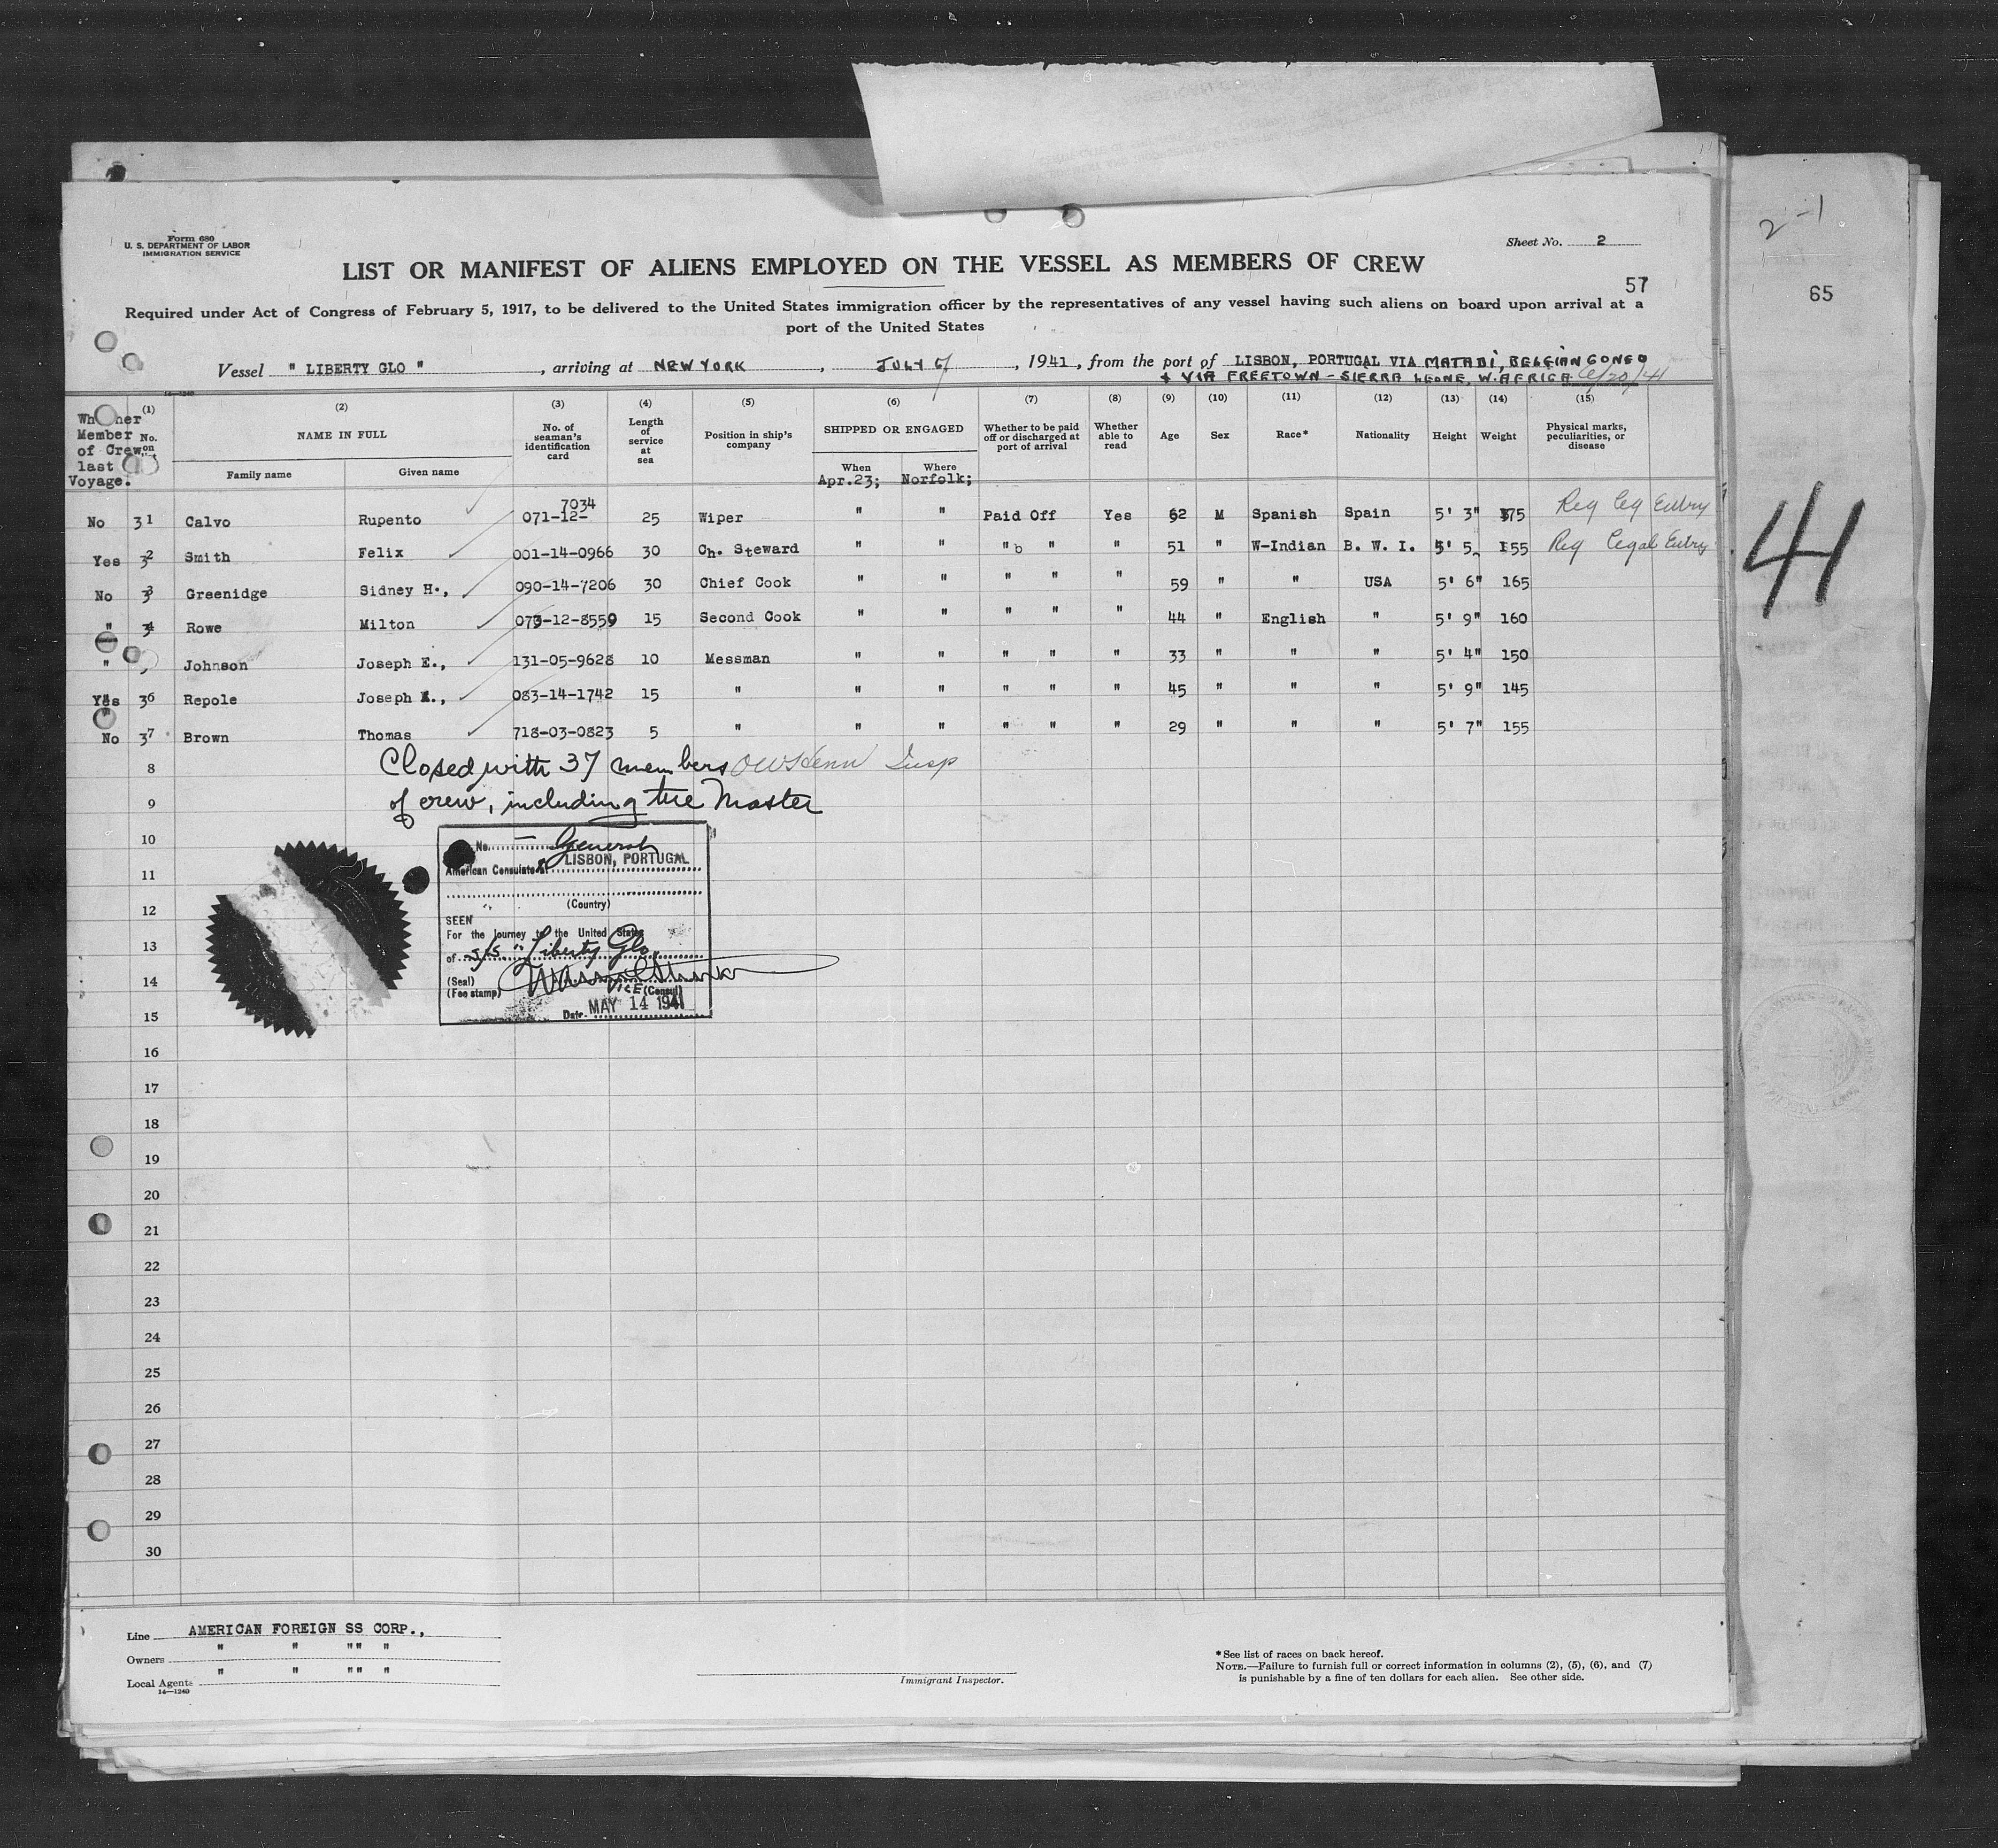 2-1
65
41
Form 680
U. S. DEPARTMENT OF LABOR
IMMIGRATION SERVICE
Sheet No. 2
LIST OR MANIFEST OF ALIENS EMPLOYED ON THE VESSEL AS MEMBERS OF CREW
57
Required under Act of Congress of February 5, 1917, to be delivered to the United States immigration officer by the representatives of any vessel having such aliens on board upon arrival at a
port of the United States
Vessel " LIBERTY GLO " , arriving at NEW YORK , JULY , 1941, from the port of LISBON, PORTUGAL VIA MATADI, BELGIAN CONGO
+ VIA FREETOWN - SIERRA LEONE, W. AFRICA 6/20/41
14-1240
Whether Member of Crew last Voyage.
(1) No. on
(2) NAME IN FULL
Family name Given name
(3) No. of seaman's identification card
(4) Length of service at sea
(5) Position in ship's company
(6) SHIPPED OR ENGAGED
When Where
Apr.23; Norfolk;
(7) Whether to be paid off or discharged at port of arrival
(8) Whether able to read
(9) Age
(10) Sex
(11) Race*
(12) Nationality
(13) Height
(14) Weight
(15) Physical marks, peculiarities, or disease
No 31 Calvo Rupento 071-12-7034 25 Wiper " " Paid Off Yes 62 M Spanish Spain 5' 3" 175 Req Leg Entry
Yes 32 Smith Felix 001-14-0966 30 Ch. Steward " " " " " 51 " W-Indian B. W. I. 5' 5 155 Req Legal Entry
No 33 Greenidge Sidney H., 090-14-7206 30 Chief Cook " " " " " 59 " " USA 5' 6" 165
" 34 Rowe Milton 073-12-8559 15 Second Cook " " " " " 44 " English " 5' 9" 160
" Johnson Joseph E., 131-05-9628 10 Messman " " " " " 33 " " " 5' 4" 150
Yes 36 Repole Joseph 083-14-1742 15 " " " " " " 45 " " " 5' 9" 145
No 37 Brown Thomas 718-03-0823 5 " " " " " " 29 " " " 5' 7" 155
8 Closed with 37 members Insp
9 of crew, including the Master
10
11
12
13
14
15
16
17
18
19
20
21
22
23
24
25
26
27
28
29
30
No. General
American Consulate LISBON, PORTUGAL
(Country)
SEEN
For the journey to the United States
of s/s "Liberty Glo"
(Seal)
(Fee stamp)
VICE (Consul)
Date MAY 14 1941
Line AMERICAN FOREIGN SS CORP.,
Owners " " " " "
Local Agents " " " " "
14-1240
Immigrant Inspector.
*See list of races on back hereof.
NOTE.—Failure to furnish full or correct information in columns (2), (5), (6), and (7)
is punishable by a fine of ten dollars for each alien. See other side.